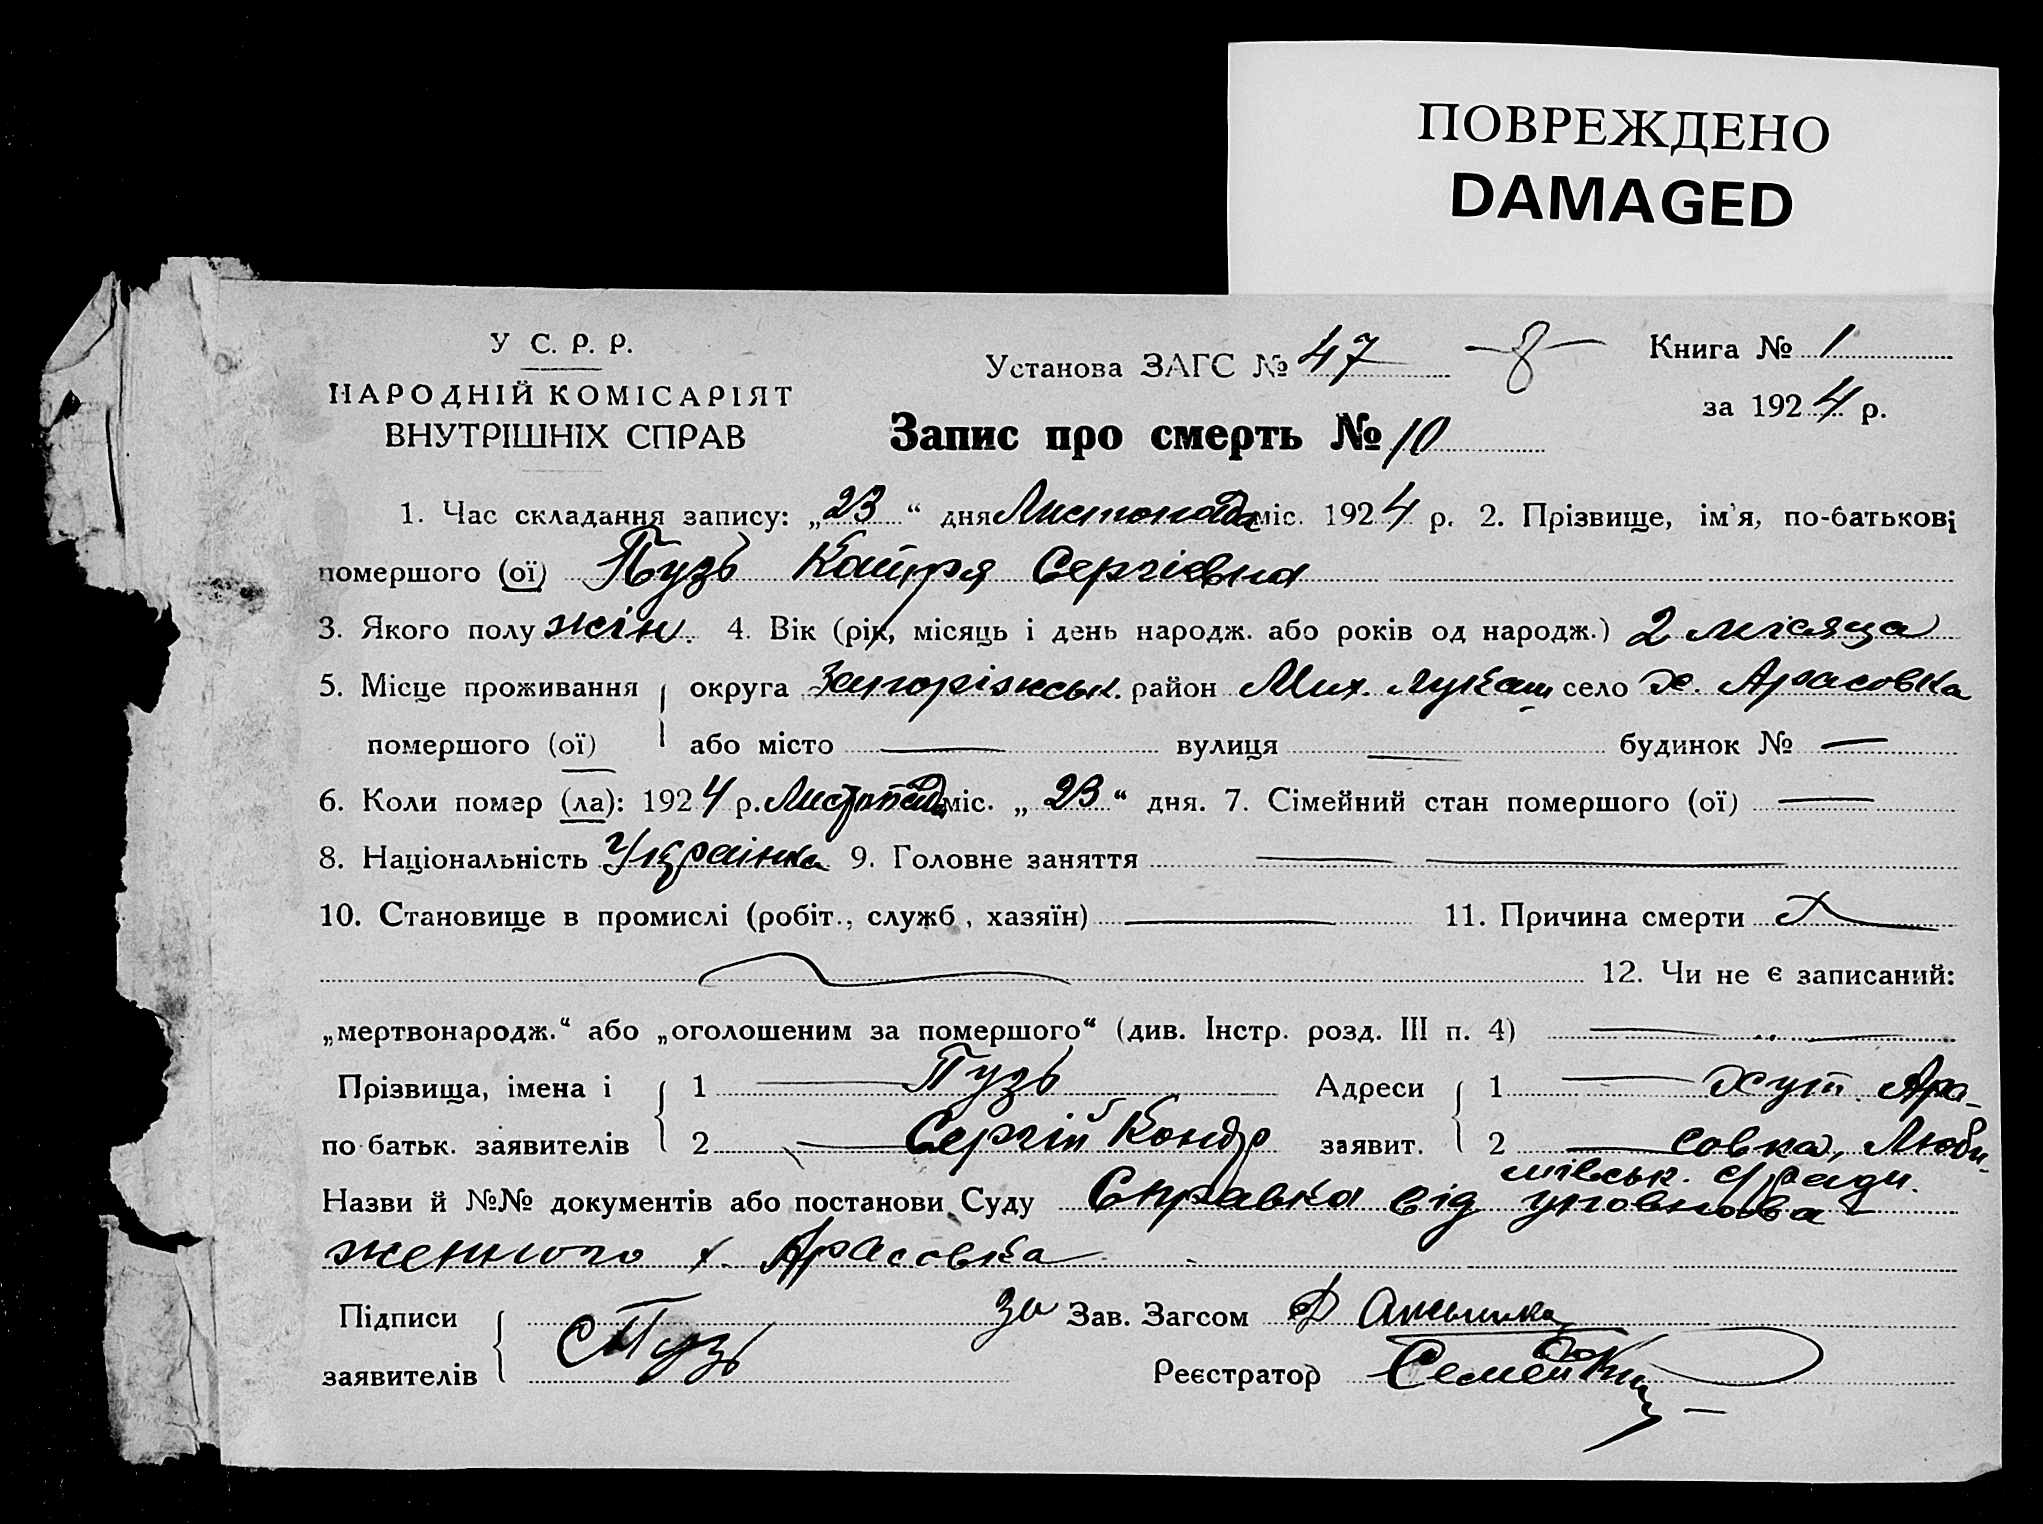 ПОВРЕЖДЕНО
DAMAGED
У С. Р. Р.
НАРОДНІЙ КОМІСАРІЯТ
ВНУТРІШНІХ СПРАВ
Установа ЗАГС № 47 — 8 —
Книга № 1
за 1924 р.
Запис про смерть № 10
1. Час складання запису: „23“ дня Листопада міс. 1924 р. 2. Прізвище, ім'я, по-батькові
помершого (ої) Пузь Катря Сергієвна
3. Якого полу жін. 4. Вік (рік, місяць і день народж. або років од народж.) 2 місяца
5. Місце проживання округа Запоріжськ. район Мих. Лукаш село х. Арасовка
помершого (ої) або місто — вулиця — будинок № —
6. Коли помер (ла): 1924 р. Листопада міс. „23“ дня. 7. Сімейний стан помершого (ої) —
8. Національність Українка 9. Головне заняття — —
10. Становище в промислі (робіт., служб., хазяїн) — 11. Причина смерти
12. Чи не є записаний:
„мертвонародж.“ або „оголошеним за помершого“ (див. Інстр. розд. III п. 4) — „ —
Прізвища, імена і 1 — Пузь Адреси 1 — Хут. Ара-
по батьк. заявителів 2 — Сергій Кондр заявит. 2 — совка, Люби-
мівськ. с/ради.
Назви й №№ документів або постанови Суду Справка від уповнова-
женного х. Арасовка
Підписи За Зав. Загсом
заявителів СПузь Реєстратор